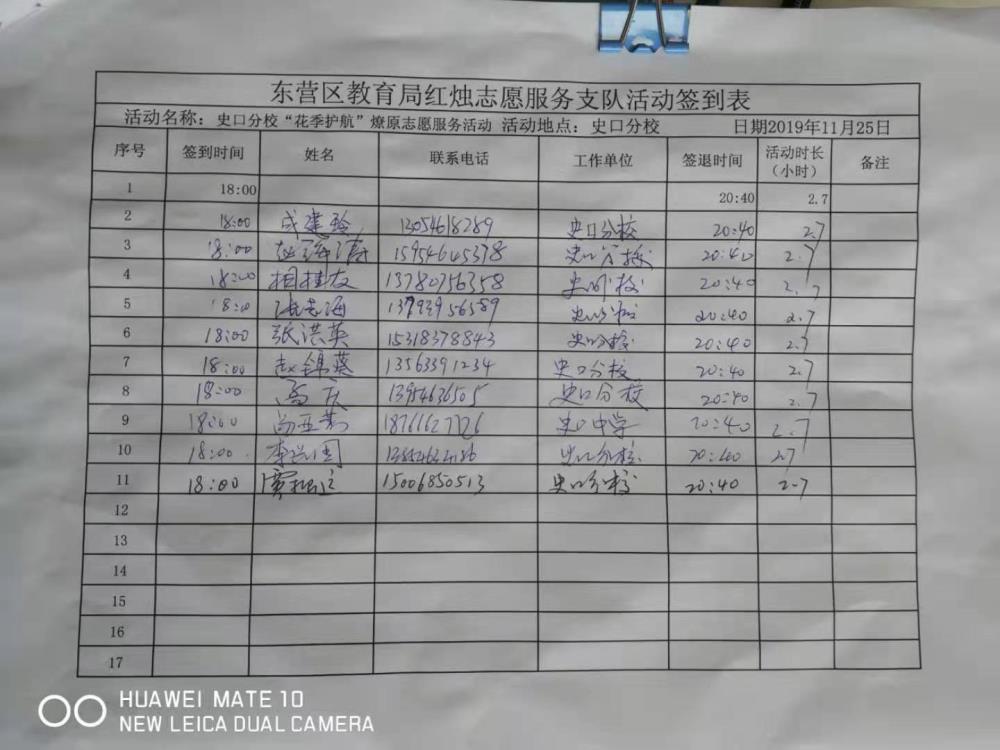 东营区教育局红烛志愿服务支队活动签到表
活动名称：史口分校“花季护航”燎原志愿服务活动 活动地点：史口分校 日期2019年11月25日
序号 签到时间 姓名 联系电话 工作单位 签退时间 活动时长（小时） 备注
1 18:00 20:40 2.7
2 18:00 成建玲 13054618289 史口分校 20:40 2.7
3 18:00 15954645378 史口分校 20:40 2.7
4 18:00 相桂友 13780756358 史口分校 20:40 2.7
5 18:00 史口分校 20:40 2.7
6 18:00 张洪英 15318378843 史口分校 20:40 2.7
7 18:00 赵锦葵 13563391234 史口分校 20:40 2.7
8 18:00 高庆 13954636505 史口分校 20:40 2.7
9 18:00 18766627726 史口中学 20:40 2.7
10 18:00 史口分校 20:40 2.7
11 18:00 15006850513 史口分校 20:40 2.7
12
13
14
15
16
17
HUAWEI MATE 10
NEW LEICA DUAL CAMERA